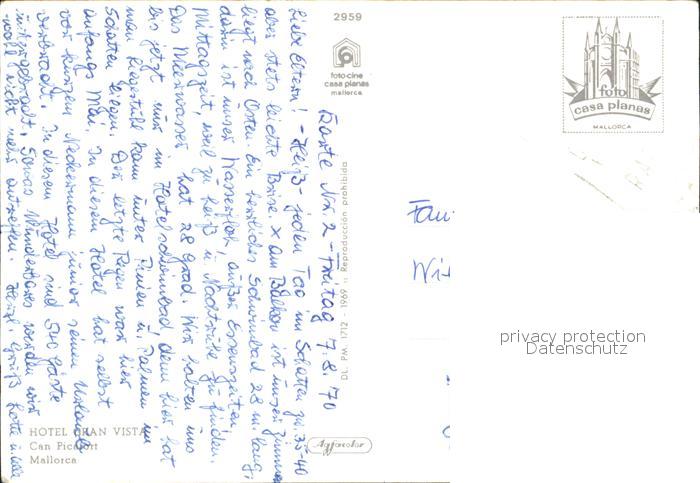 2959
foto-cine
casa planas
mallorca
foto
casa planas
MALLORCA
Karte Nr. 2 - Freitag 7.8.70
Liebe Eltern! - Heiß - jeden Tag im Schatten 35-40
aber stets leichte Brise x am Balkon ist unser Zimmer
liegt nach Osten. Ein herrliches Schwimmbad 28 m lang,
darin ist unser außer Essenszeiten
Mittagszeit, weil zu heiß u. Nachtruhe zu finden.
Das Meerwasser hat 28 Grad. Wir halten uns
bis jetzt nur im Hotelschwimmbad, denn hier hat
man Liegestuhl kann unter Pinien u. Palmen im
Schatten liegen. Der letzte Regen war hier
anfangs Mai. In diesem Hotel hat selbst
vor kurzem Neckermann junior seinen Urlaub
verbracht. In diesem Hotel sind 500 Gäste
untergebracht. Sowas Wunderbares werden wir
wohl nicht mehr antreffen. Herzl. Grüße
DL. PM. 1712 - 1969 :: Reproducción prohibida
Fam
Agfacolor
HOTEL GRAN VISTA
Can Picafort
Mallorca
privacy protection
Datenschutz